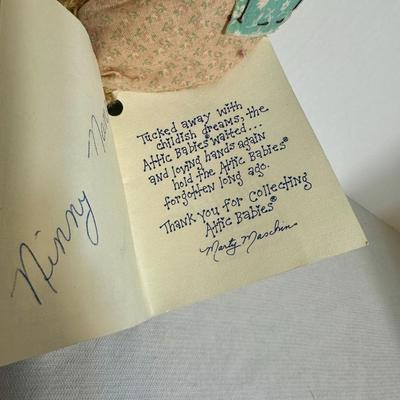 Ninny
Tucked away with
childish dreams, the
Attic Babies® waited...
and loving hands again
hold the Attic Babies®
forgotten long ago.
Thank you for collecting
Attic Babies®
Marty Maschin